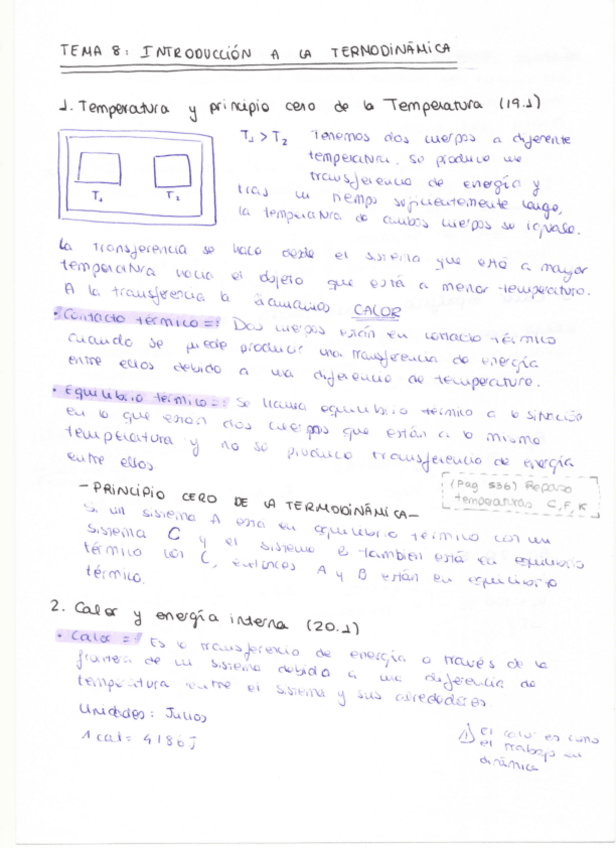 TEMA 8: INTRODUCCIÓN A LA TERMODINÁMICA
1. Temperatura y principio cero de la Temperatura (19.1)
T₁ > T₂ Tenemos dos cuerpos a diferente
temperatura. Se produce una
transferencia de energía y
tras un tiempo suficientemente largo,
la temperatura de ambos cuerpos se iguala.
T₁ T₂
La transferencia se hace desde el sistema que está a mayor
temperatura hacia el objeto que está a menor temperatura.
A la transferencia la llamamos CALOR
• Contacto térmico =: Dos cuerpos están en contacto térmico
cuando se puede producir una transferencia de energía
entre ellos debido a una diferencia de temperatura.
• Equilibrio térmico =: Se llama equilibrio térmico a la situación
en la que están dos cuerpos que están a la misma
temperatura y no se produce transferencia de energía
entre ellos
(Pag 536) Repaso
temperaturas C, F, K
- PRINCIPIO CERO DE LA TERMODINÁMICA -
Si un sistema A está en equilibrio térmico con un
sistema C y el sistema B también está en equilibrio
térmico con C, entonces A y B están en equilibrio
térmico.
2. Calor y energía interna (20.1)
• Calor =: Es la transferencia de energía a través de la
frontera de un sistema debido a una diferencia de
temperatura entre el sistema y sus alrededores.
Unidades: Julios
1 cal = 4186 J
! El calor es como
el trabajo en
dinámica